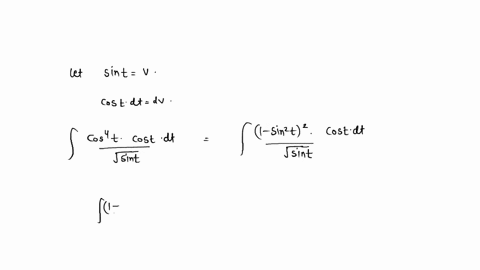 let sint = v .
cost · dt = dv .
∫ cos⁴t · cost · dt / √sint = ∫ (1-sin²t)² · cost·dt / √sint
∫(1-